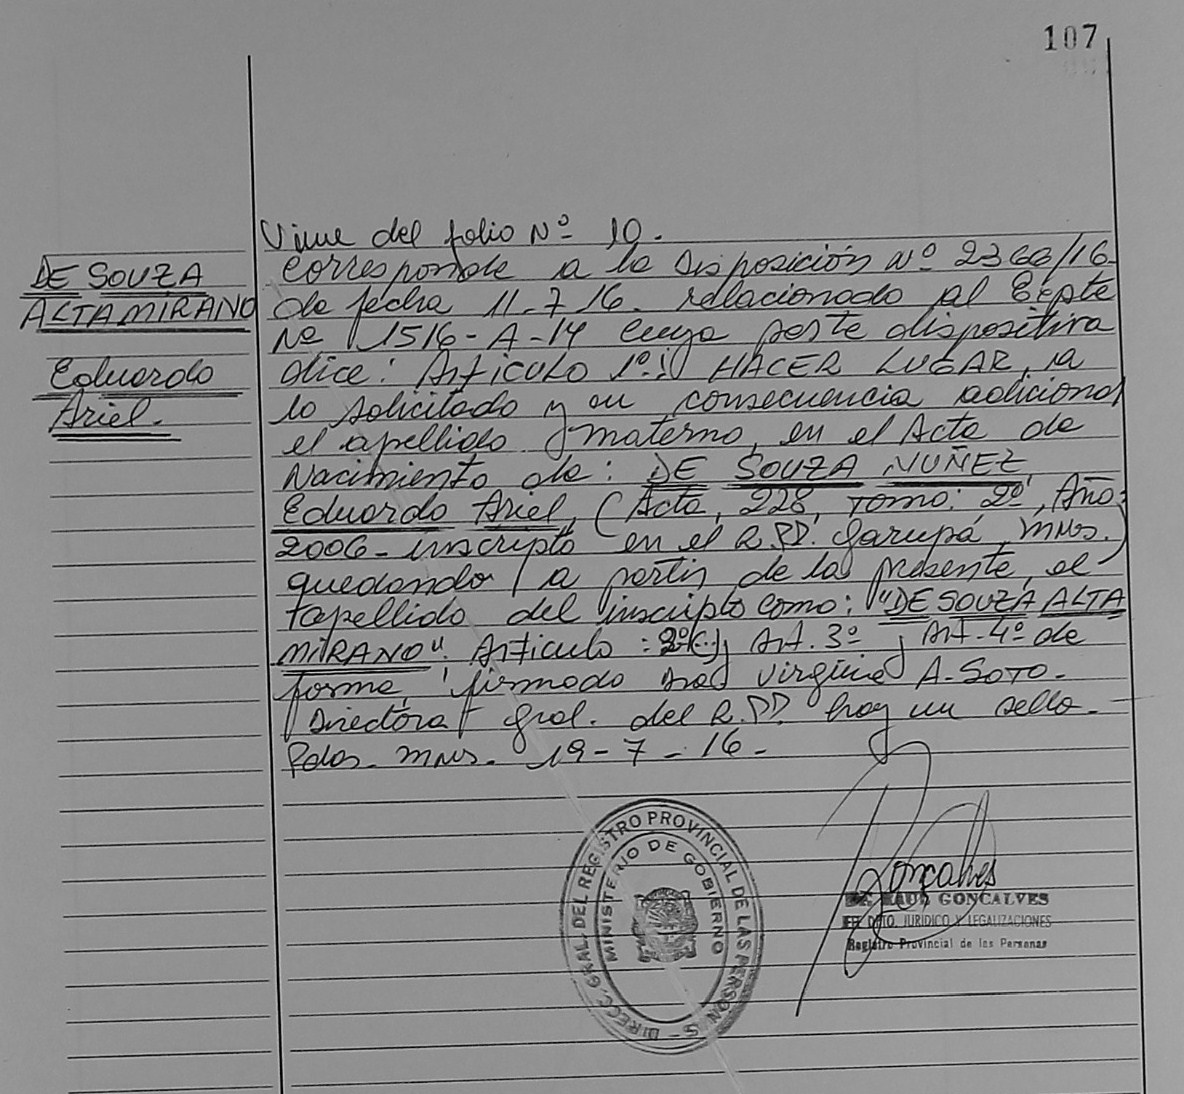 107
DE SOUZA
ALTAMIRANO
Eduardo
Ariel.
Viene del folio Nº 10.
Corresponde a la Disposición Nº 2366/16
de fecha 11.7.16. relacionado al Expte
Nº 1516-A-14 cuya parte dispositiva
dice: Artículo 1º: HACER LUGAR, a
lo solicitado y en consecuencia adicional
el apellido materno, en el Acta de
Nacimiento de: DE SOUZA NUÑEZ
Eduardo Ariel, (Acta, 228, Tomo: 2º, Año:
2006- inscripto en el R.PP. Garupá, Mnes.)
quedando a partir de la presente, el
apellido del inscripto como: "DE SOUZA ALTA
MIRANO". Artículo: 2º(..), Art. 3º, Art. 4º de
forma, firmado Dra Virginia A. SOTO.
Directora Gral. del R.PP. hay un sello.
Pdas. Mnes. 19-7-16.-
DIRECC. GRAL. DEL REGISTRO PROVINCIAL DE LAS PERSONAS
MINISTERIO DE GOBIERNO
Goncalves
RAUL GONCALVES
DPTO. JURIDICO Y LEGALIZACIONES
Registro Provincial de las Personas